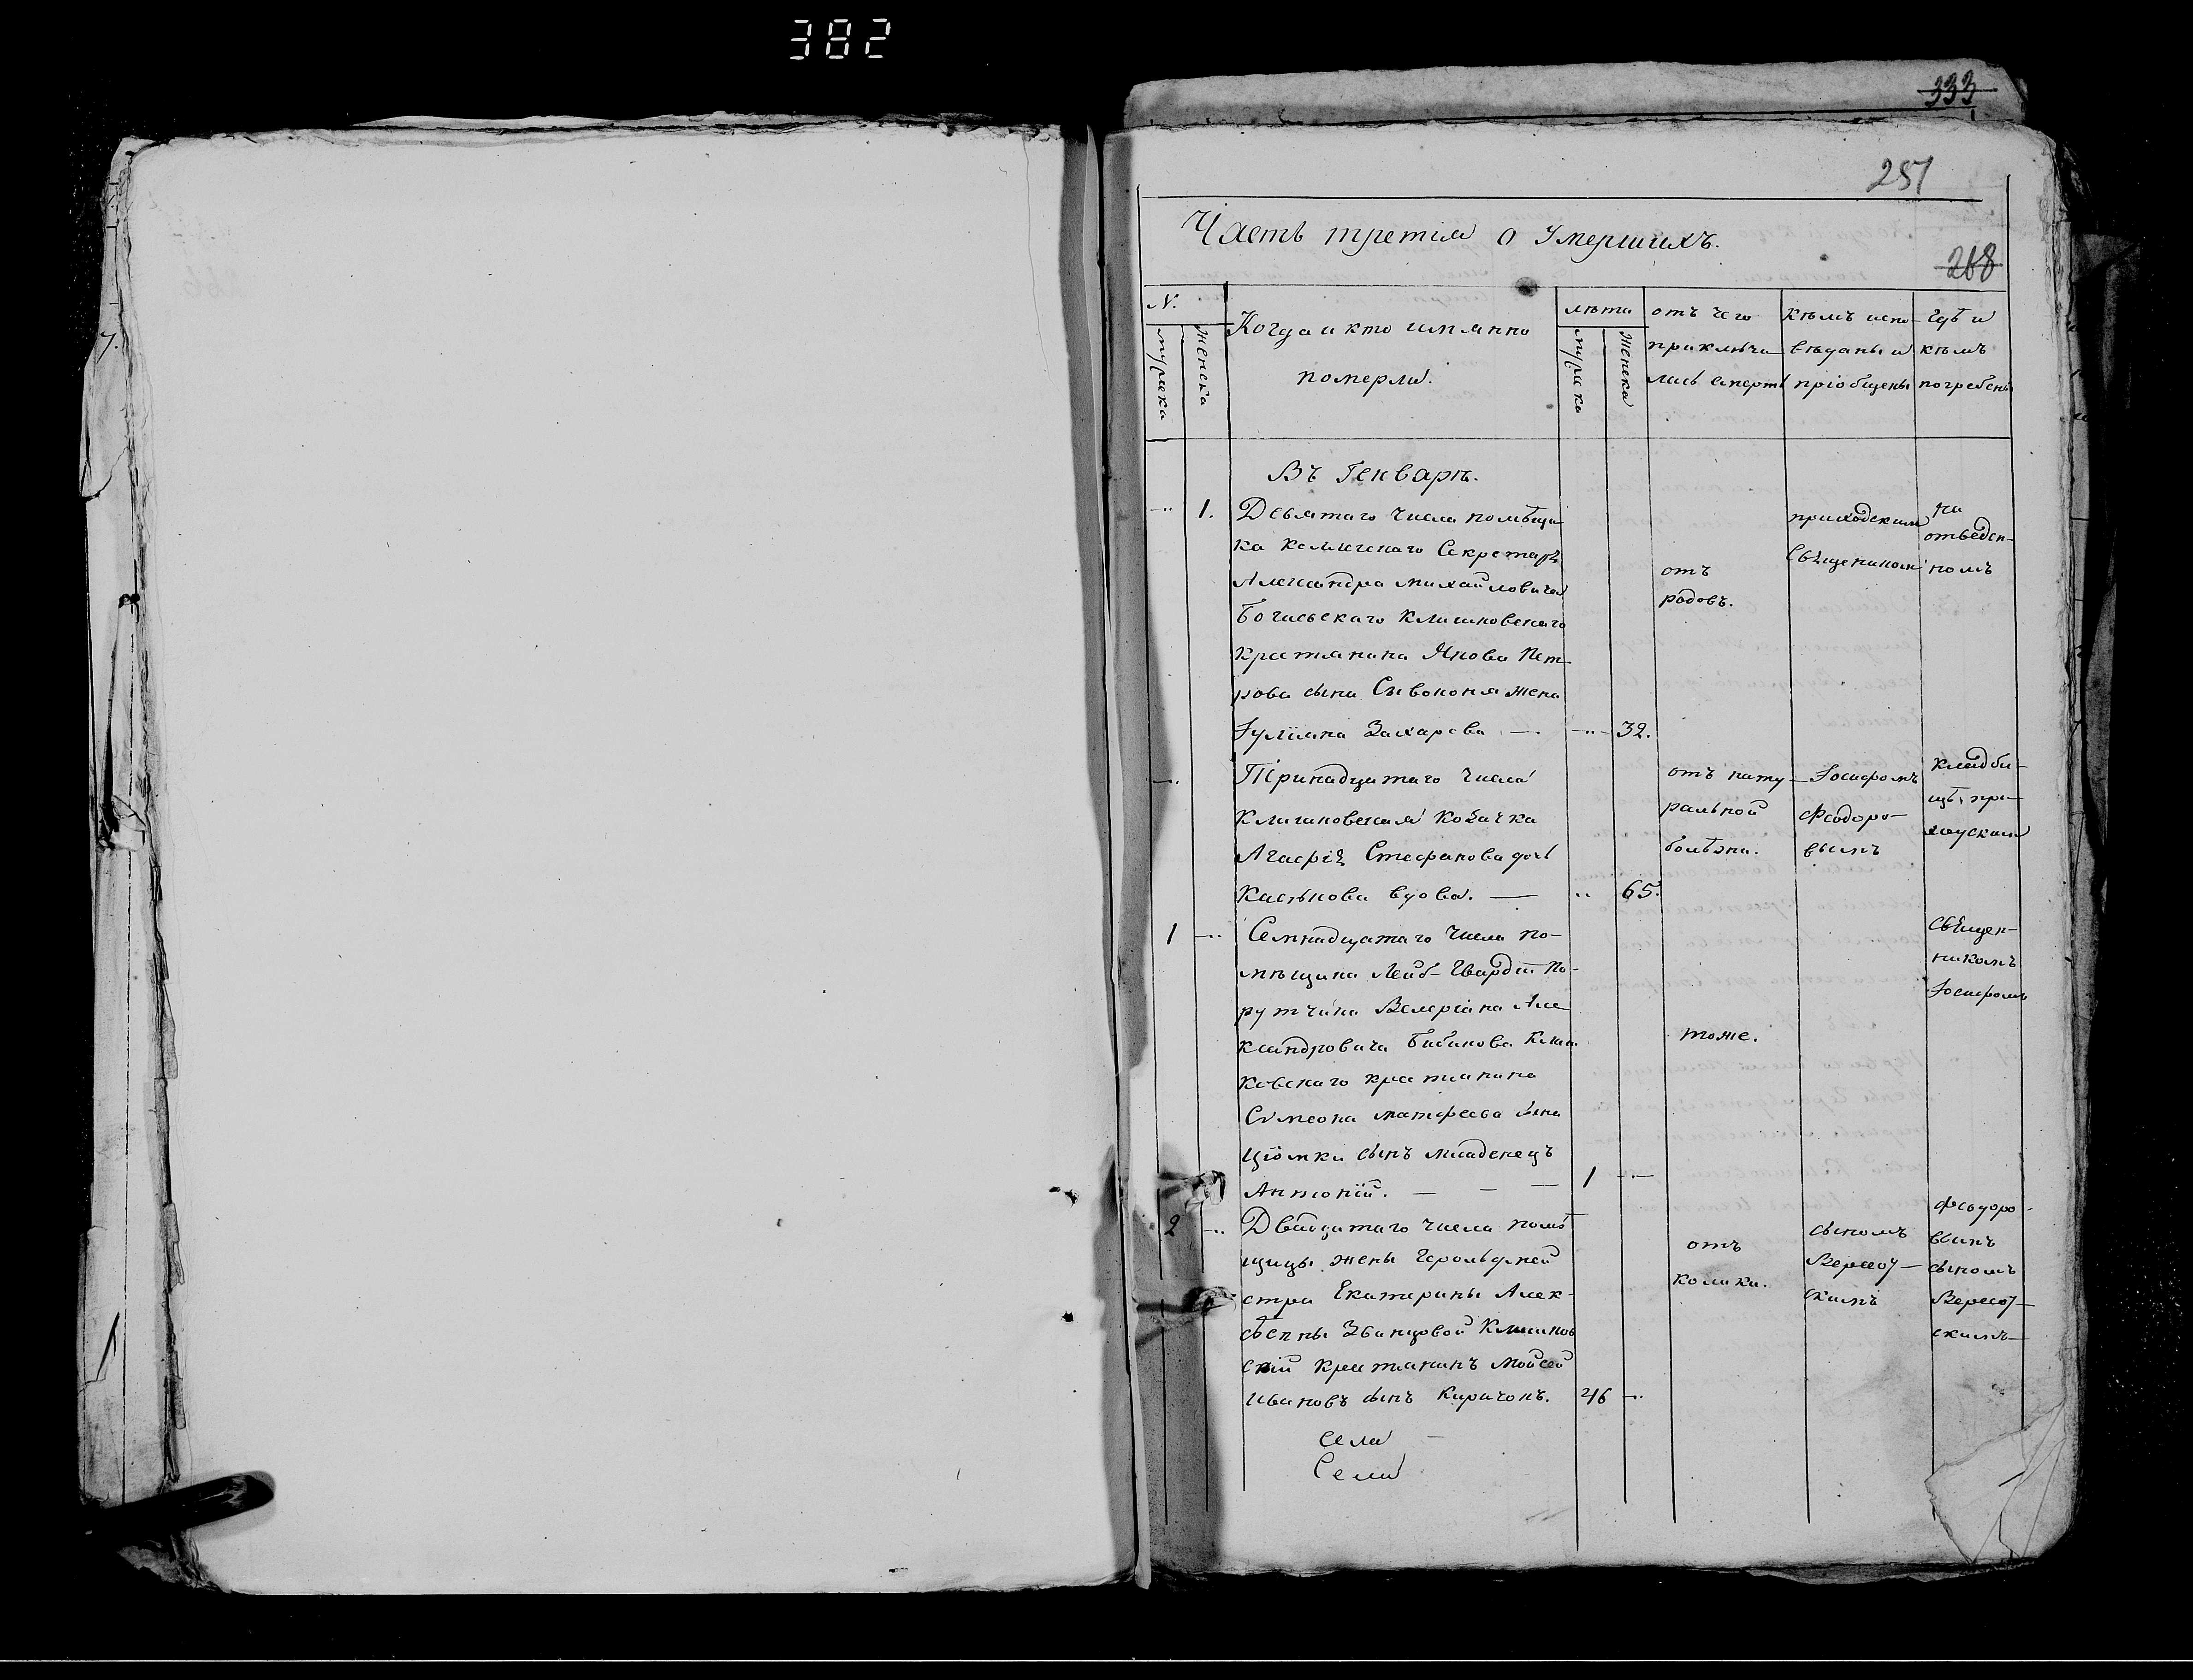 382
333
251
Часть третія о умершихъ.
268
N.
мужеска
женска
Когда и кто имянно
померли.
лѣта
мужеска
женска
отъ чего
приключи
лась смерть
Кѣмъ испо-
вѣданы и
пріобщены
Гдѣ и
кѣмъ
погребены
Въ Генварѣ.
1.
Девятаго числа помѣщи
ка Коллегскаго Секретаря
Александра Михайловича
Клишковскаго
крестянина Якова Пет-
рова сына Сивоконя жена
Іуліяна Захарова —.
32.
отъ
родовъ.
приходскимъ
Священикомъ
на
отведен-
номъ
Тринадцатаго числа
Клишковская козачка
Агафія Стефанова дочь
вдова. —
65.
отъ нату-
ральной
болѣзни.
Іосифомъ
Феодоро-
вымъ
кладби-
щѣ, при-
1
Семнадцатаго числа по-
мѣщика Лейб-Гвардіи По-
рутчика Валеріана Але
ксандровича Бибикова Клиш
ковскаго крестянина
Симеона Матфеева сына
Цїомки сынъ младенецъ
Антоній. — — —
1
тоже.
Священ-
никомъ
Іосифомъ
2
Двадцатаго числа помѣ
щицы жены Герольдмей
стра Екатерины Алек-
сѣевны Званцовой Клишков
скій крестянинъ Мойсей
Ивановъ сынъ Киричокъ.
46
отъ
колики.
сыномъ
Вересоч-
скимъ
Феодоро-
вымъ
сыномъ
Вересоч-
скимъ
села —
Села